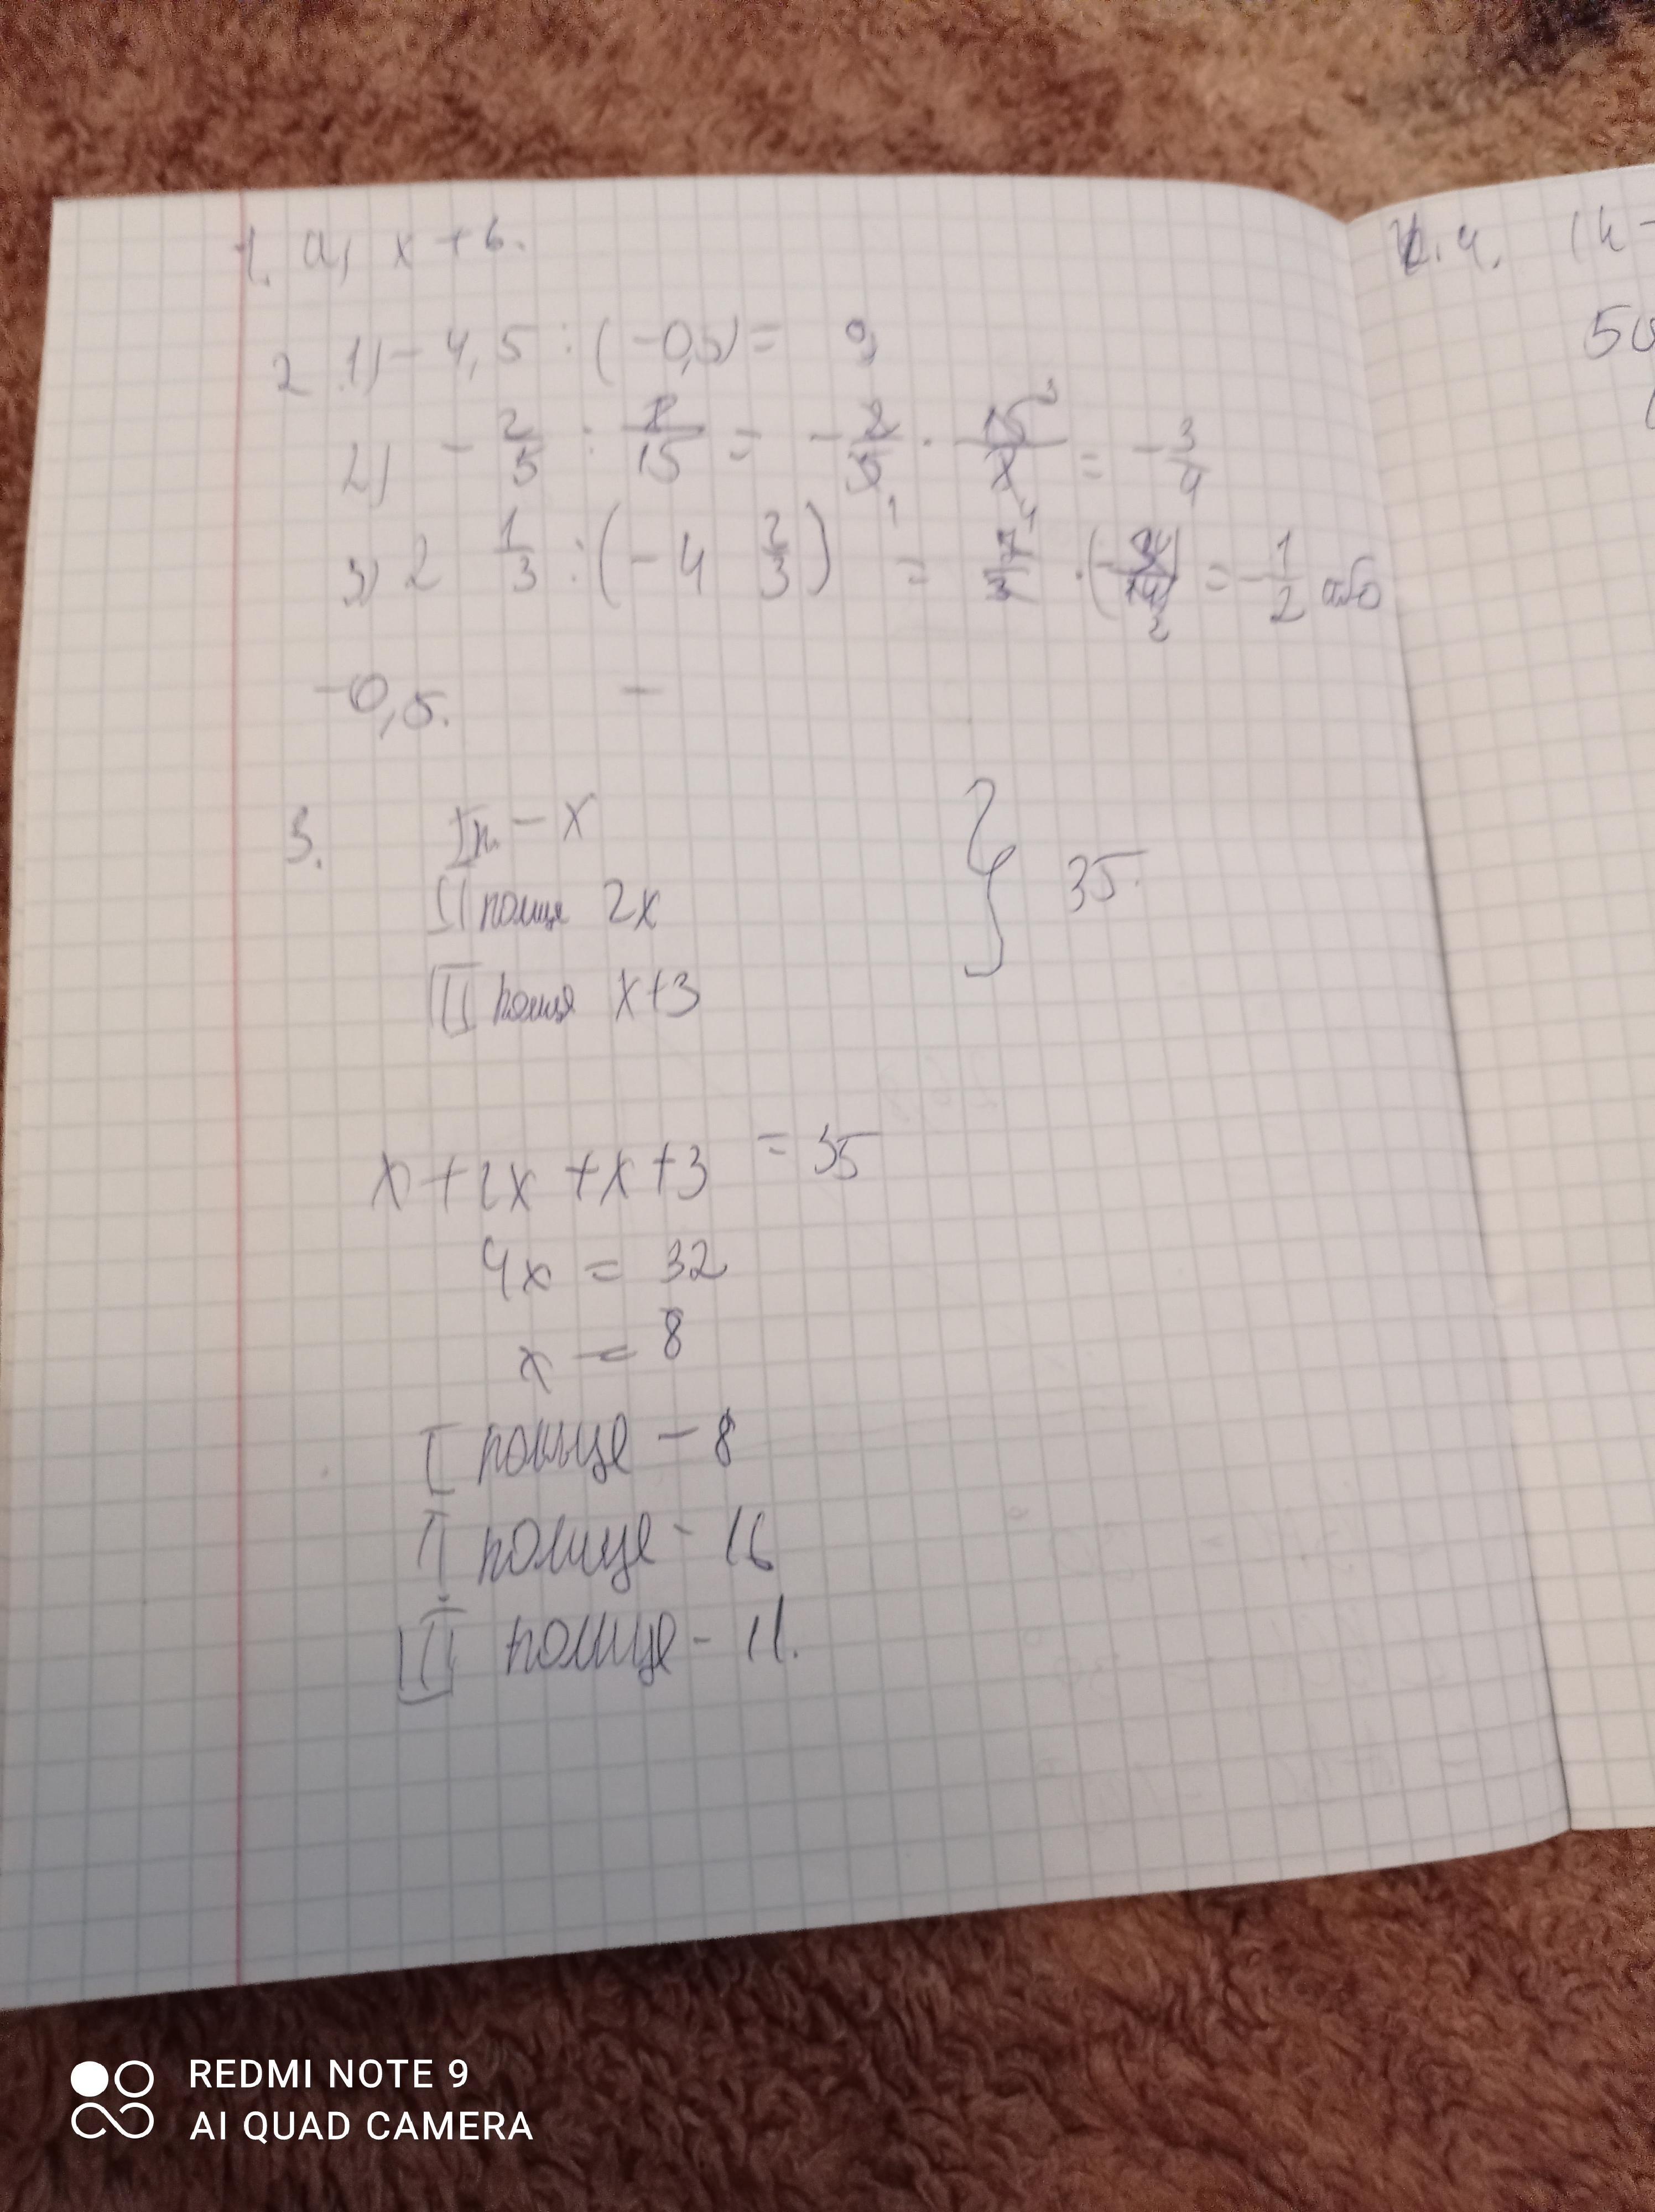 1. а) x + 6.
2 1) - 4,5 : (-0,5) = 9
2) - 2/5 : 8/15 = - 2/5 · 15/8 = - 3/4
3) 2 1/3 : (- 4 2/3) = 7/3 · (- 3/14) = - 1/2 або
-0,5. -
3. I п. - x
II полиця 2x
III полиця x+3
} 35.
x + 2x + x + 3 = 35
4x = 32
x = 8
I полиця - 8
II полиця - 16
III полиця - 11.
4.
50
REDMI NOTE 9
AI QUAD CAMERA